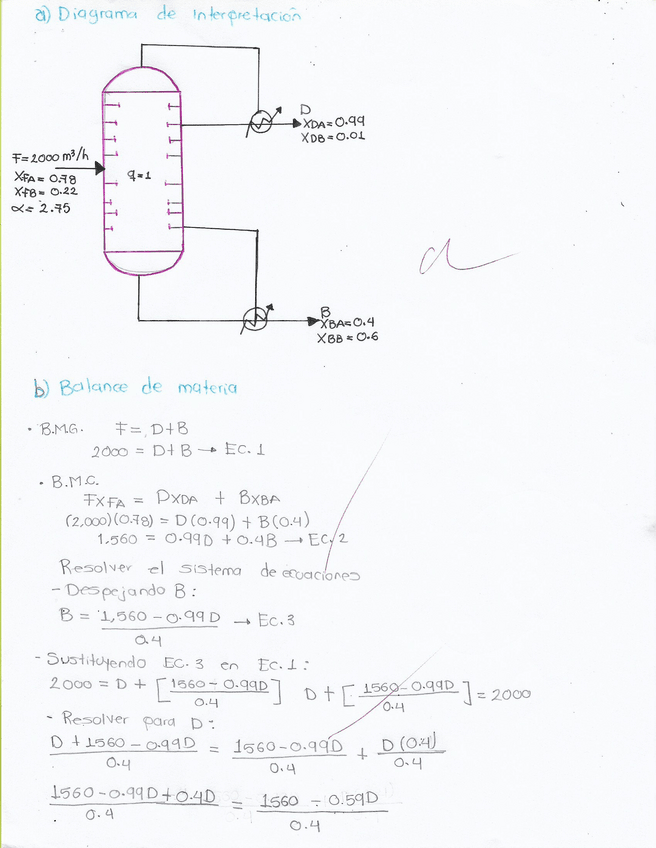 a) Diagrama de interpretación
D
XDA = 0.99
XDB = 0.01
F = 2000 m³/h
XFA = 0.78
XFB = 0.22
α = 2.75
q=1
B
XBA = 0.4
XBB = 0.6
b) Balance de materia
• B.M.G. F = D+B
2000 = D+B → Ec. 1
• B.M.C.
FXFA = DXDA + BXBA
(2,000)(0.78) = D(0.99) + B(0.4)
1,560 = 0.99D + 0.4B → Ec. 2
Resolver el sistema de ecuaciones
- Despejando B:
B = 1,560 - 0.99D / 0.4 → Ec. 3
- Sustituyendo Ec. 3 en Ec. 1:
2000 = D + [1560 - 0.99D / 0.4] D + [1560 - 0.99D / 0.4] = 2000
- Resolver para D:
D + 1560 - 0.99D / 0.4 = 1560 - 0.99D / 0.4 + D(0.4) / 0.4
1560 - 0.99D + 0.4D / 0.4 = 1560 - 0.59D / 0.4